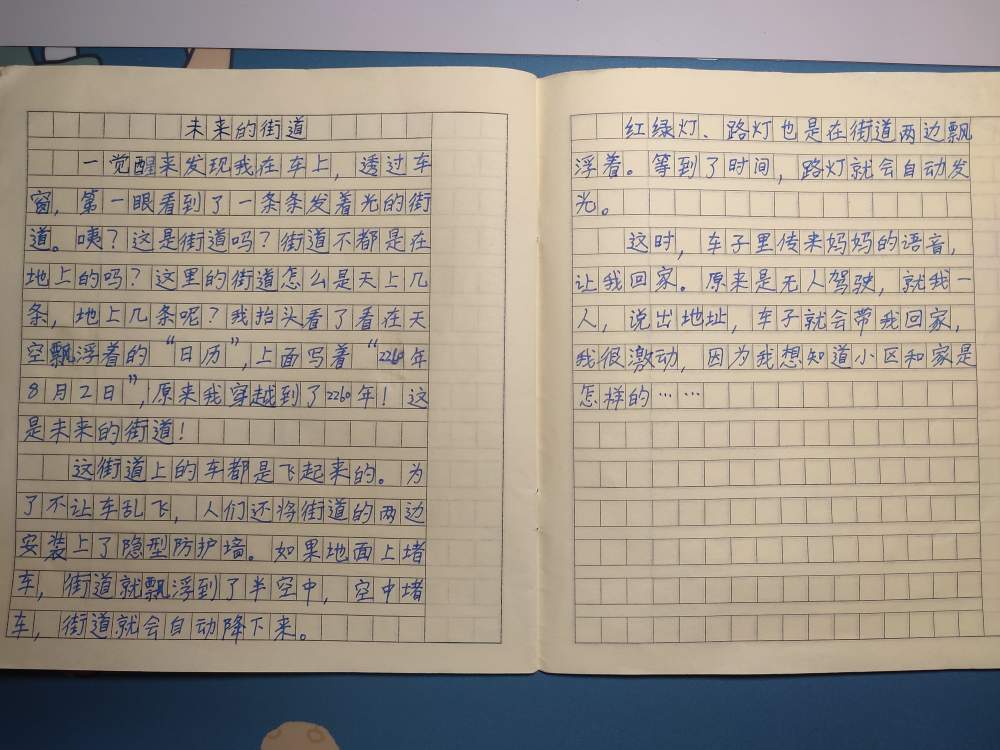 未来的街道
一觉醒来发现我在车上，透过车
窗，第一眼看到了一条条发着光的街
道。咦？这是街道吗？街道不都是在
地上的吗？这里的街道怎么是天上几
条，地上几条呢？我抬头看了看在天
空飘浮着的“日历”，上面写着“2260年
8月2日”，原来我穿越到了2260年！这
是未来的街道！
这街道上的车都是飞起来的。为
了不让车乱飞，人们还将街道的两边
安装上了隐型防护墙。如果地面上堵
车，街道就飘浮到了半空中，空中堵
车，街道就会自动降下来。
红绿灯、路灯也是在街道两边飘
浮着。等到了时间，路灯就会自动发
光。
这时，车子里传来妈妈的语音，
让我回家。原来是无人驾驶，就我一
人，说出地址，车子就会带我回家，
我很激动，因为我想知道小区和家是
怎样的……